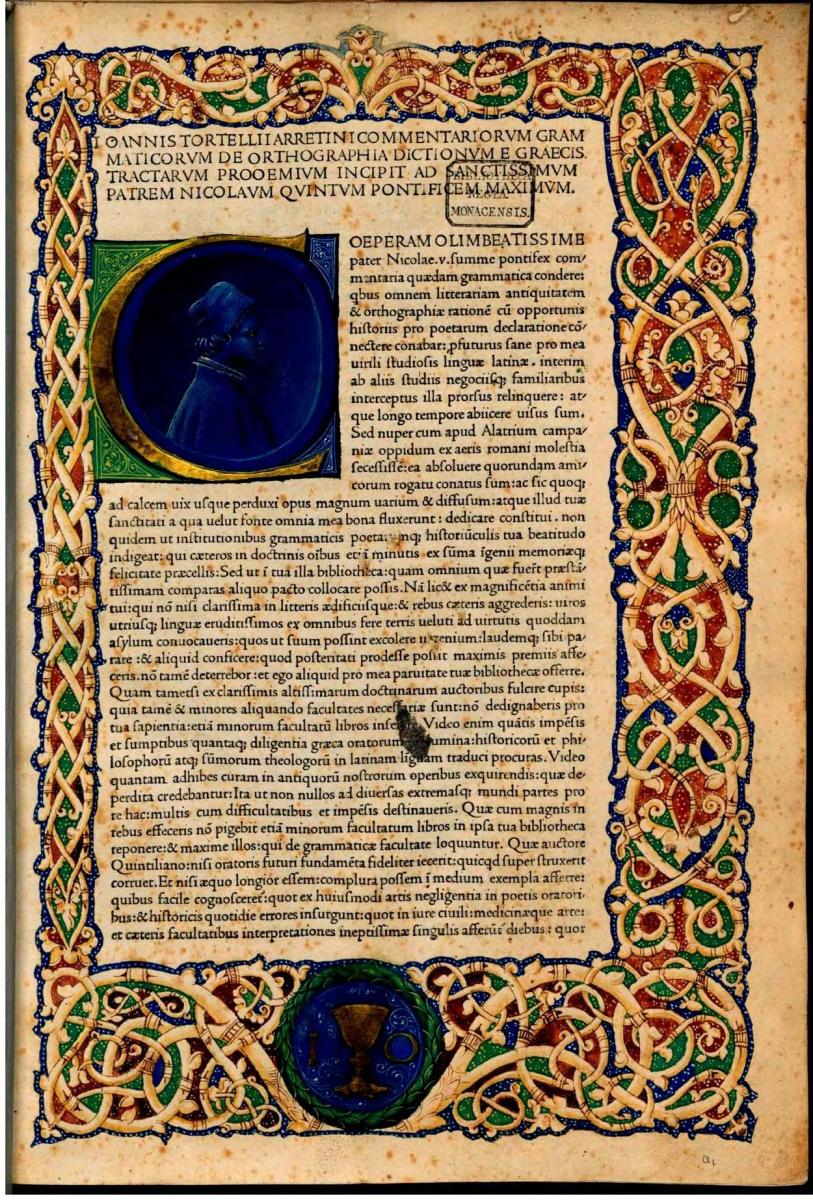 IOANNIS TORTELLII ARRETINI COMMENTARIORVM GRAM
MATICORVM DE ORTHOGRAPHIA DICTIONVM E GRAECIS.
TRACTARVM PROOEMIVM INCIPIT AD SANCTISSIMVM
PATREM NICOLAVM QVINTVM PONTIFICEM MAXIMVM.
BIBLIOTHECA
REGIA
MONACENSIS.
COEPERAM OLIM BEATISSIME
pater Nicolae.v.summe pontifex com/
mentaria quædam grammatica condere:
qbus omnem litterariam antiquitatem
& orthographiæ rationē cū opportunis
historiis pro poetarum declaratione cō/
nectere conabar: ꝓfuturus sane pro mea
uirili studiosis linguæ latinæ. interim
ab aliis studiis negociisqȝ familiaribus
interceptus illa prorsus relinquere: at/
que longo tempore abiicere uisus sum.
Sed nuper cum apud Alatrium campa/
niæ oppidum ex aeris romani molestia
secessisse: ea absoluere quorundam ami/
corum rogatu conatus sum: ac sic quoqȝ
ad calcem uix usque perduxi opus magnum uarium & diffusum: atque illud tuæ
sanctitati a qua uelut fonte omnia mea bona fluxerunt: dedicare constitui. non
quidem ut institutionibus grammaticis poetarumqȝ historiūculis tua beatitudo
indigeat: qui cæteros in doctrinis oībus etiā minutis ex sūma īgenii memoriæqȝ
felicitate præcellis: Sed ut ī tua illa bibliotheca: quam omnium quæ fuerīt præstā/
tissimam comparas aliquo pacto collocare possis. Nā lic& ex magnificētia animi
tui: qui nō nisi clarissima in litteris ædificiisque: & rebus cæteris aggrederis: uiros
utriusqȝ linguæ eruditissimos ex omnibus fere terris ueluti ad uirtutis quoddam
asylum conuocaueris: quos ut suum possint excolere ingenium: laudemqȝ sibi pa/
rare: & aliquid conficere: quod posteritati prodesse possit maximis premiis affe/
ceris. nō tamē deterrebor: et ego aliquid pro mea paruitate tuæ bibliothecæ offerre.
Quam tametsi ex clarissimis altissimarum doctrinarum auctoribus fulcire cupis:
quia tamē & minores aliquando facultates necessariæ sunt: nō dedignaberis pro
tua sapientia: etiā minorum facultatū libros Video enim quātis impēsis
et sumptibus quantaqȝ diligentia græca oratorum historicorū et phi/
losophorū atqȝ sūmorum theologorū in latinam liguam traduci procuras. Video
quantam adhibes curam in antiquorū nostrorum operibus exquirendis: quæ de/
perdita credebantur: Ita ut non nullos ad diuersas extremasqȝ mundi partes pro
re hac: multis cum difficultatibus et impēsis destinaueris. Quæ cum magnis in
rebus effeceris nō pigebit etiā minorum facultatum libros in ipsa tua bibliotheca
reponere: & maxime illos: qui de grammaticæ facultate loquuntur. Quæ auctore
Quintiliano: nisi oratoris futuri fundamēta fideliter iecerit: quicqd super struxerit
corruet. Et nisi æquo longior essem: complura possem ī medium exempla afferre:
quibus facile cognosceret: quot ex huiusmodi artis negligentia in poetis oratori/
bus: & historicis quotidie errores insurgunt: quot in iure ciuili: medicinæque arte:
et cæteris facultatibus interpretationes ineptissimæ singulis afferūt diebus: quor
I O